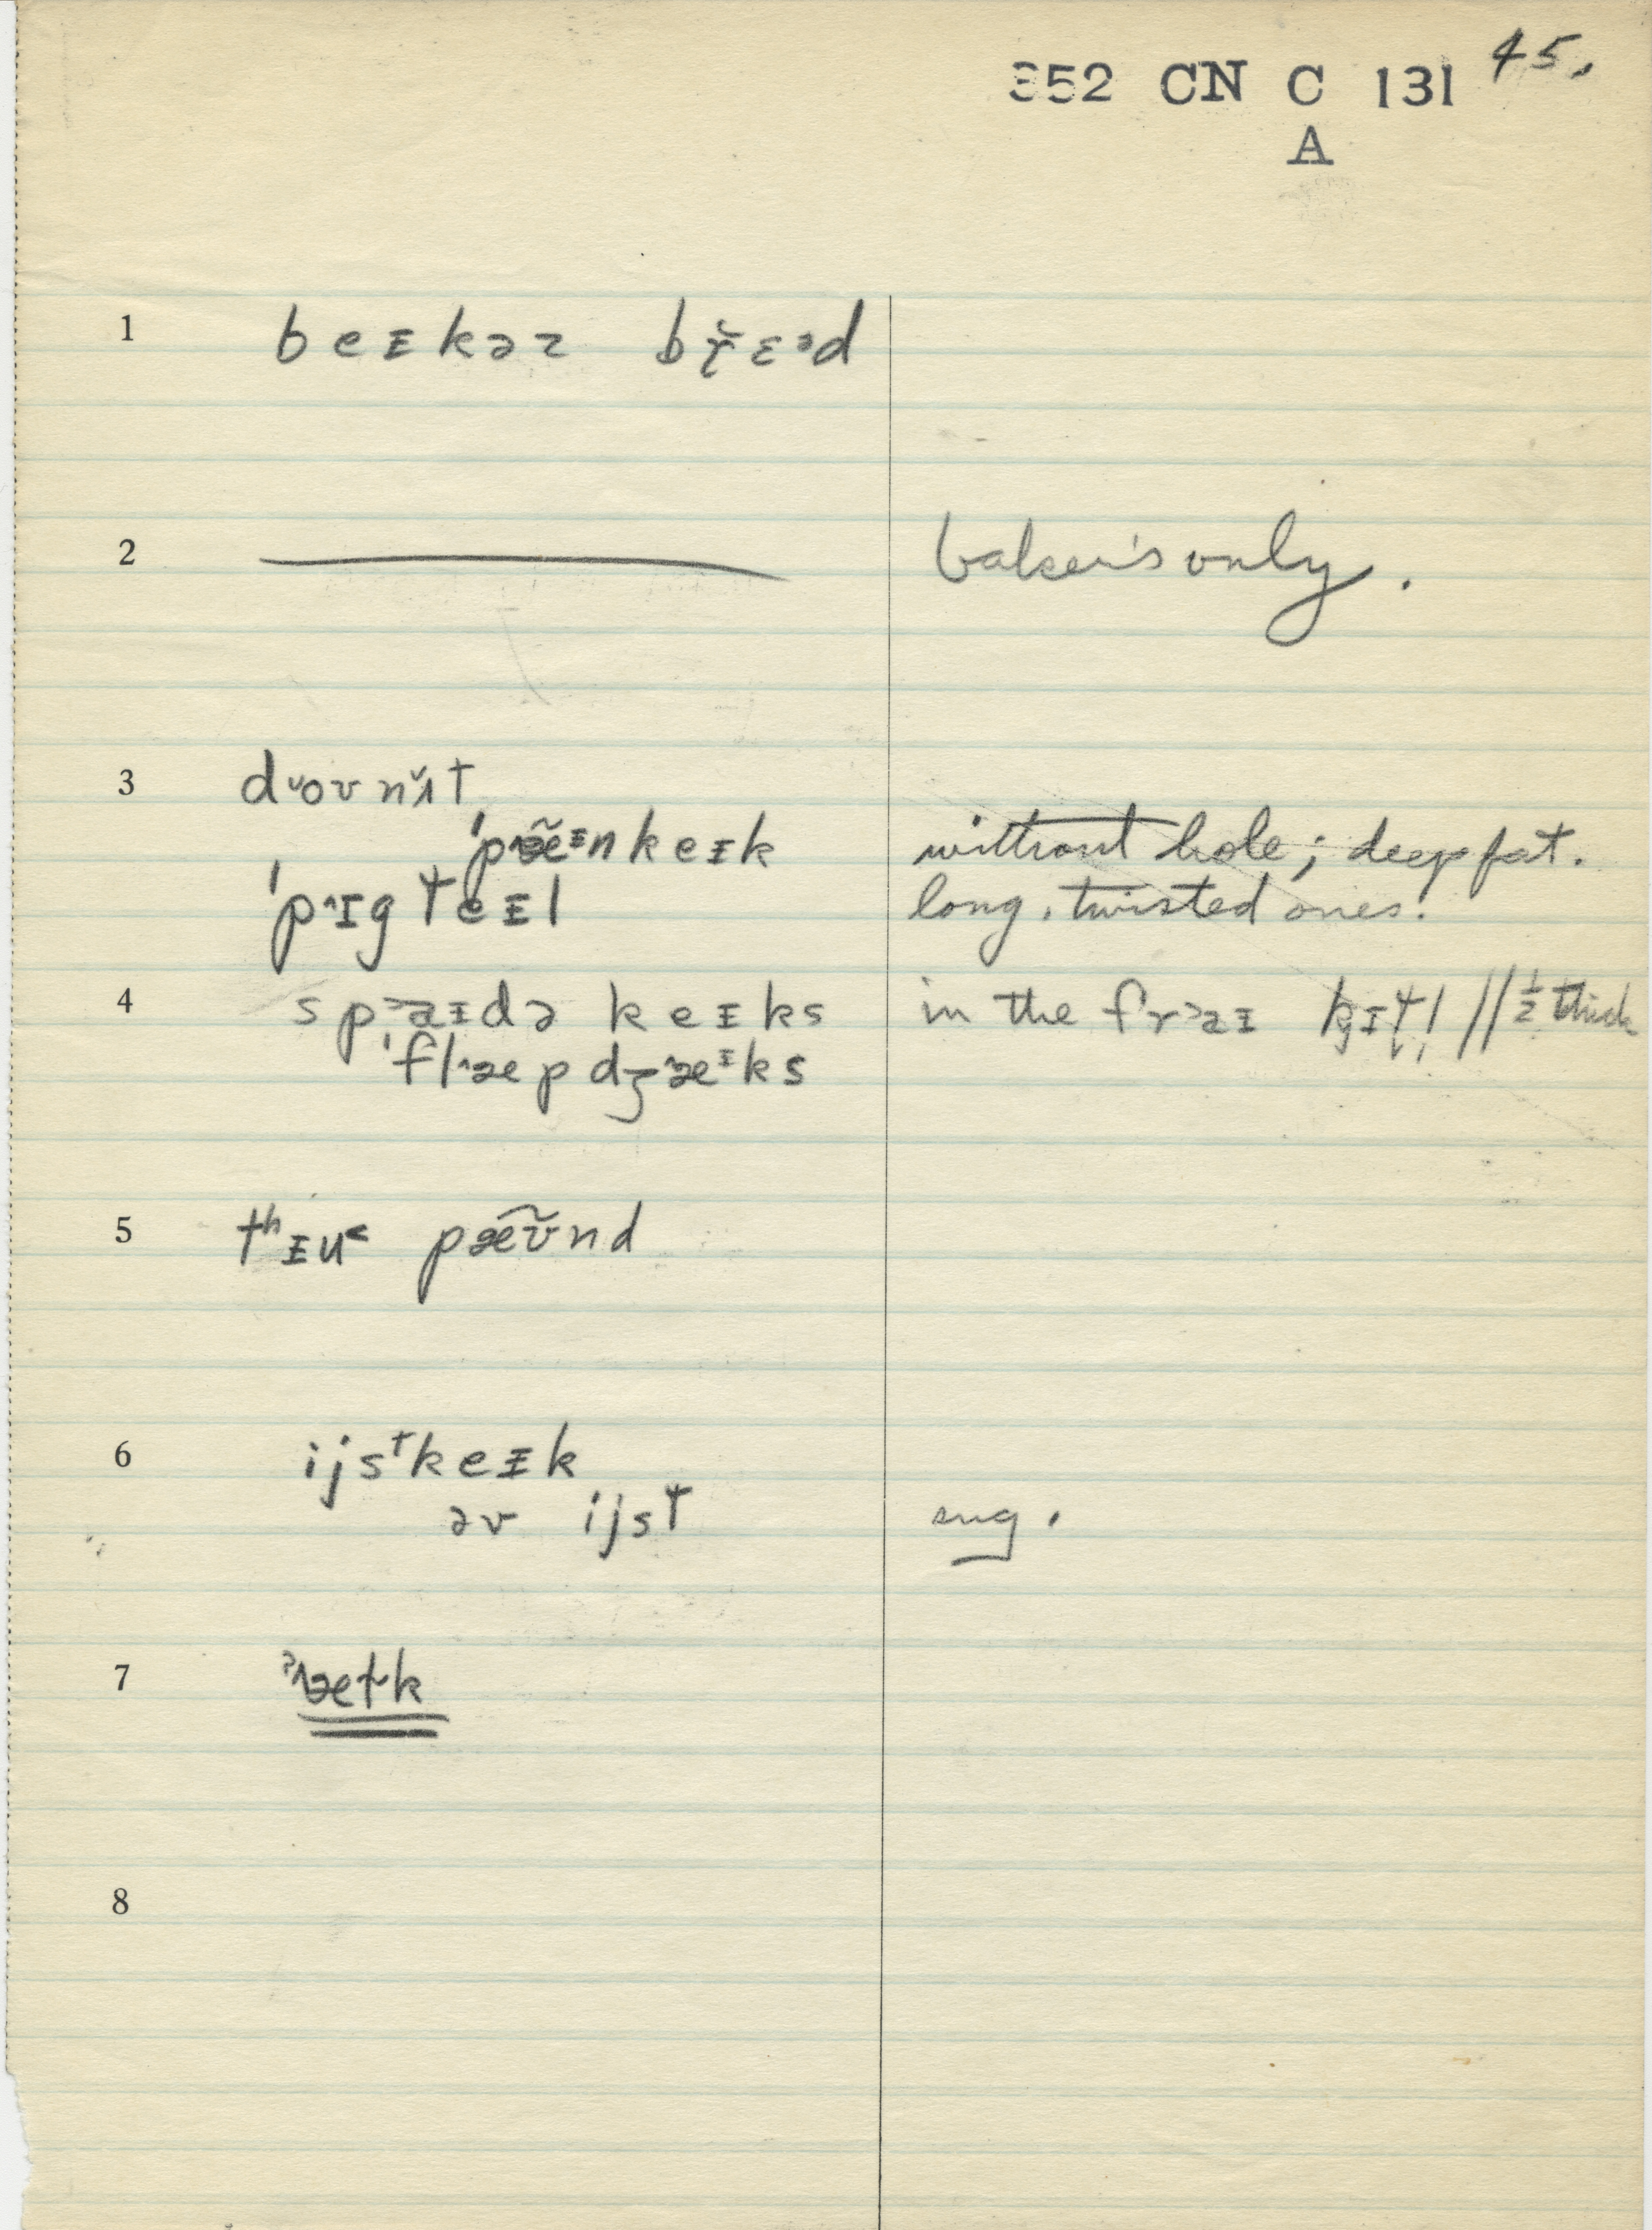 352 CN C 131 45.
A
1 beɪkəɹ bɾ̌ɛᵊd
2 baker's only.
3 dˇoʊnˇɪt
ˈpˆæ̃ᶦnkeɪk without hole; deep fat.
ˈpˆɪgteɪl long, twisted ones.
4 sp˃aɪdə keɪks in the fr˃aɪ // ½ thick
ˈflˆæpdʒˆæᶦks
5 tʰɪu˂ pæ̃ʊ̃nd
6 ijsᵗkeɪk
əv ijst sug.
7
8